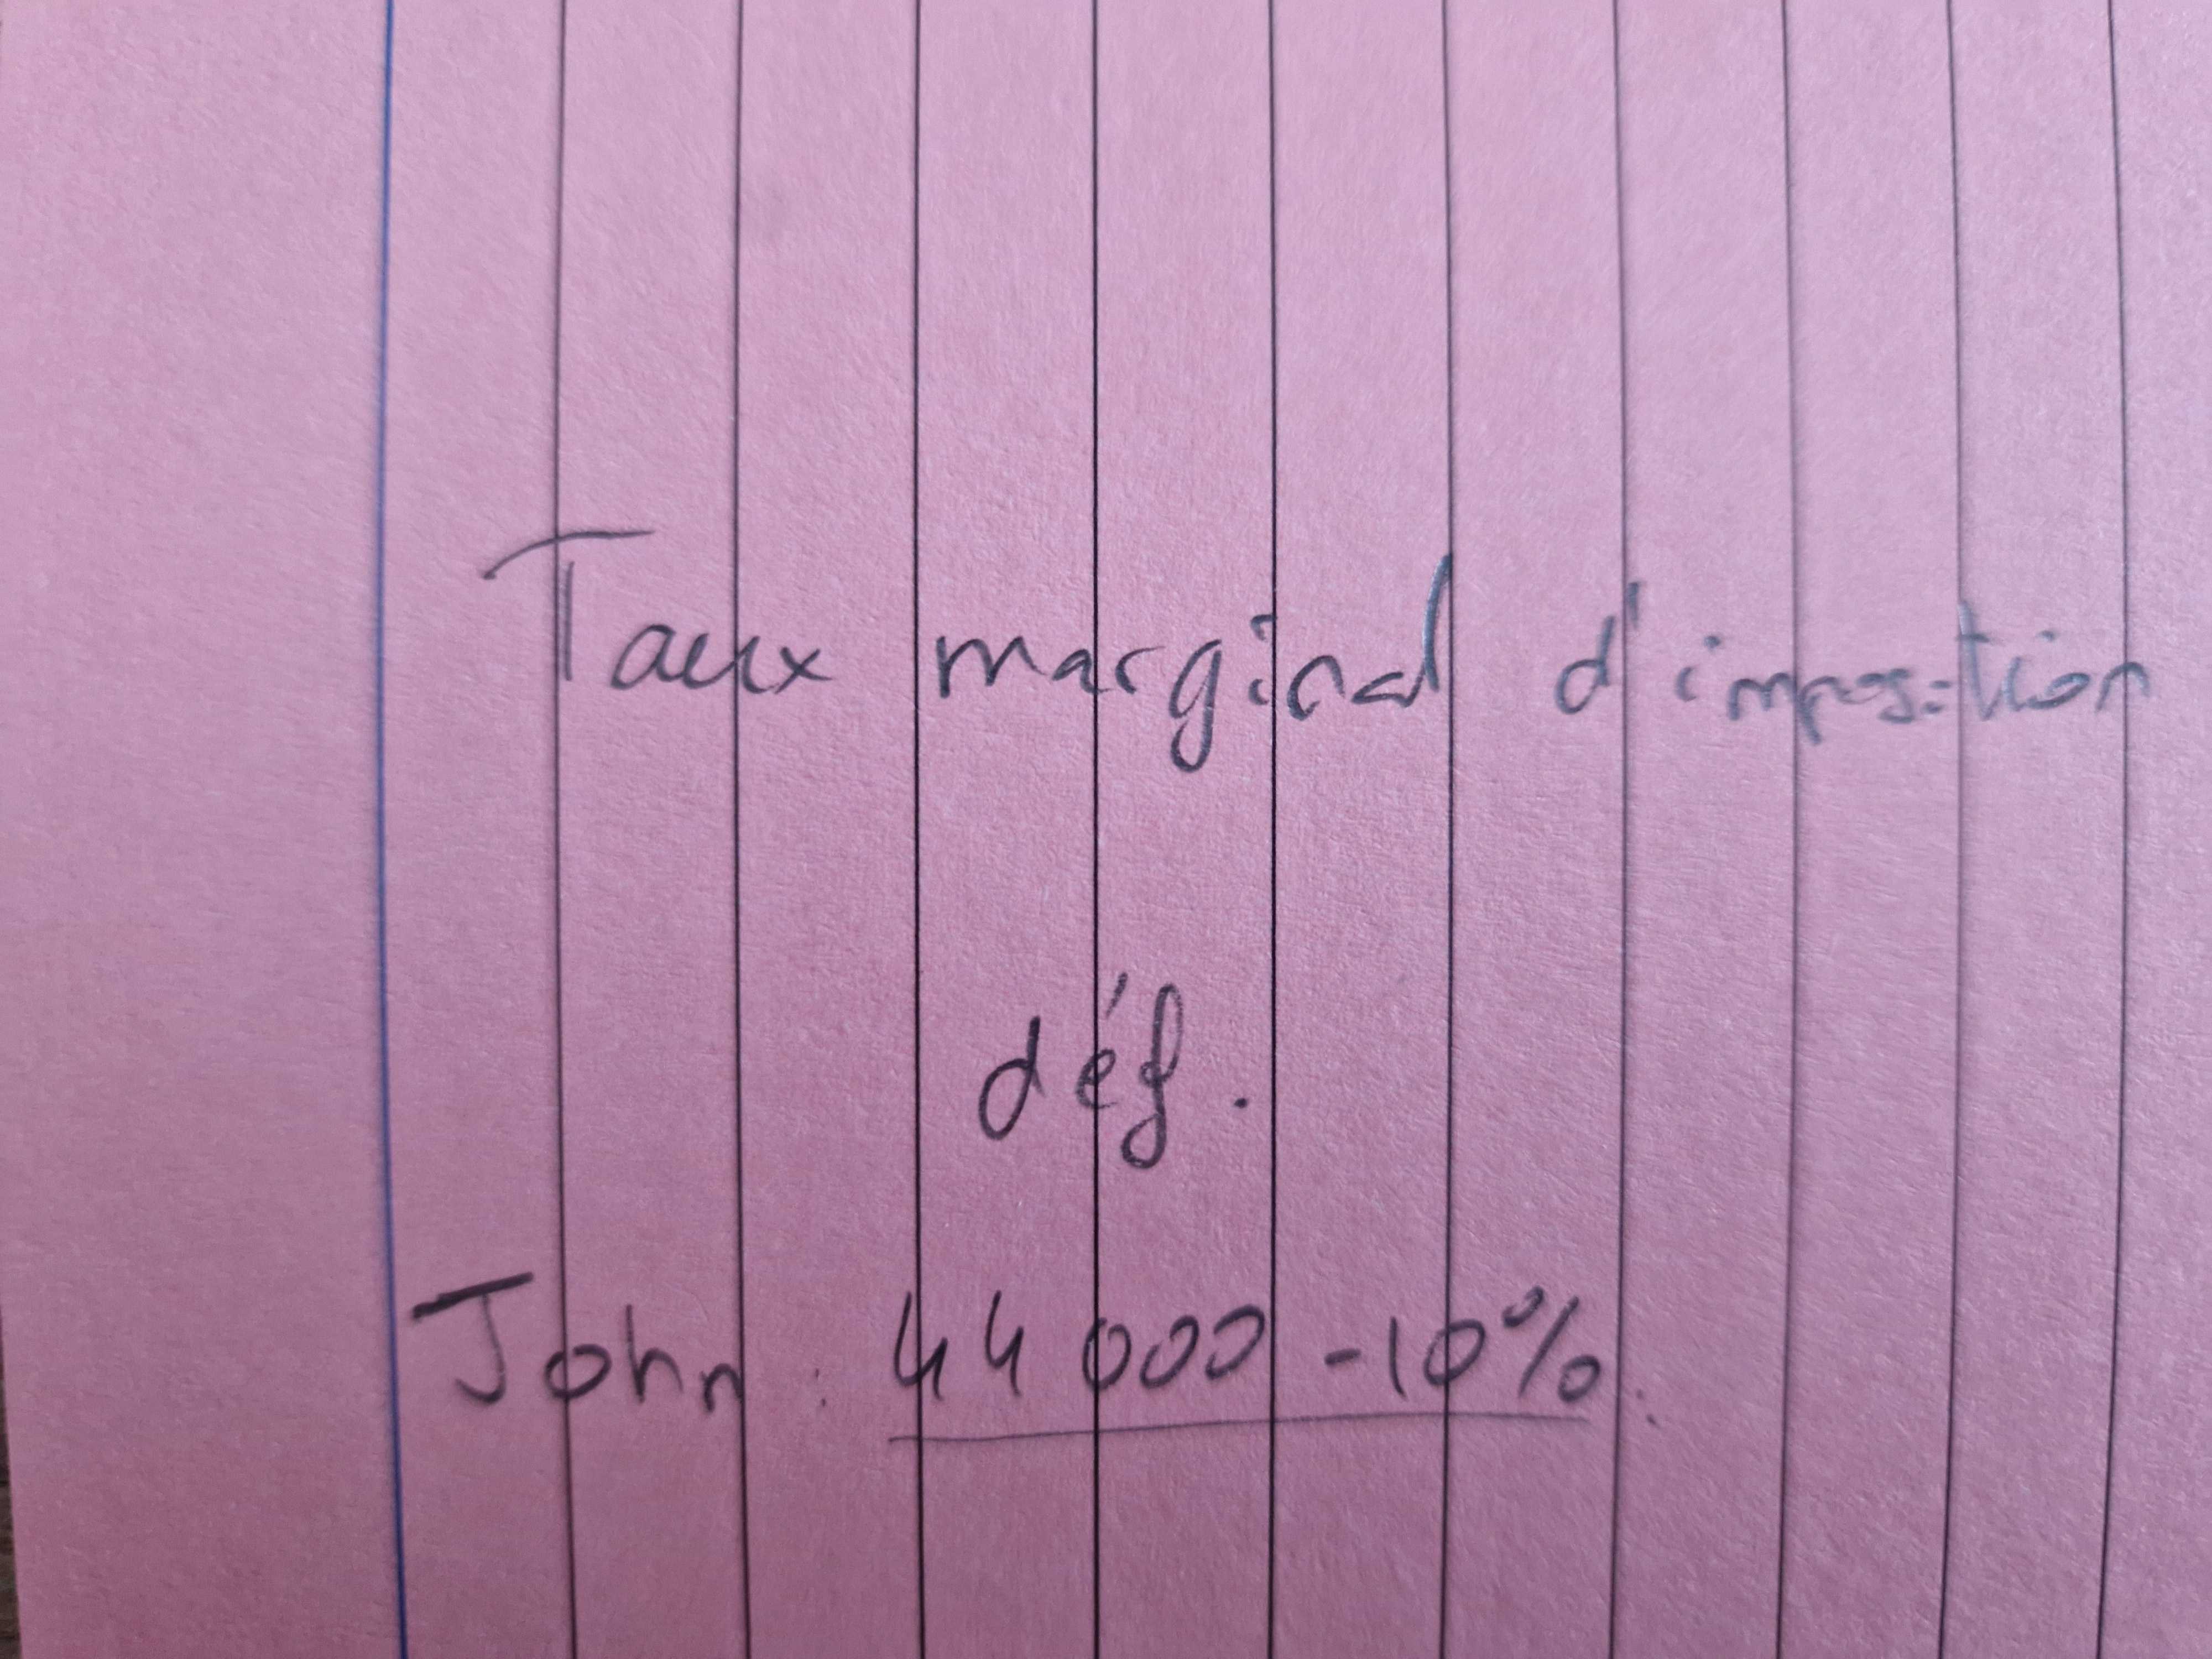 Taux marginal d'imposition
déf.
John : 44 000 -10%.